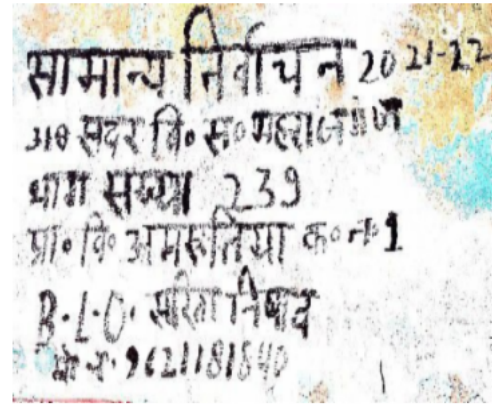 सामान्य निर्वाचन 2021-22
318 सदर वि० स० महाराजगंज
भाग संख्या 239
प्रा० वि० अमरूतिया क० न० 1
B.L.O. सरिता निषाद
मो न. 9621181840